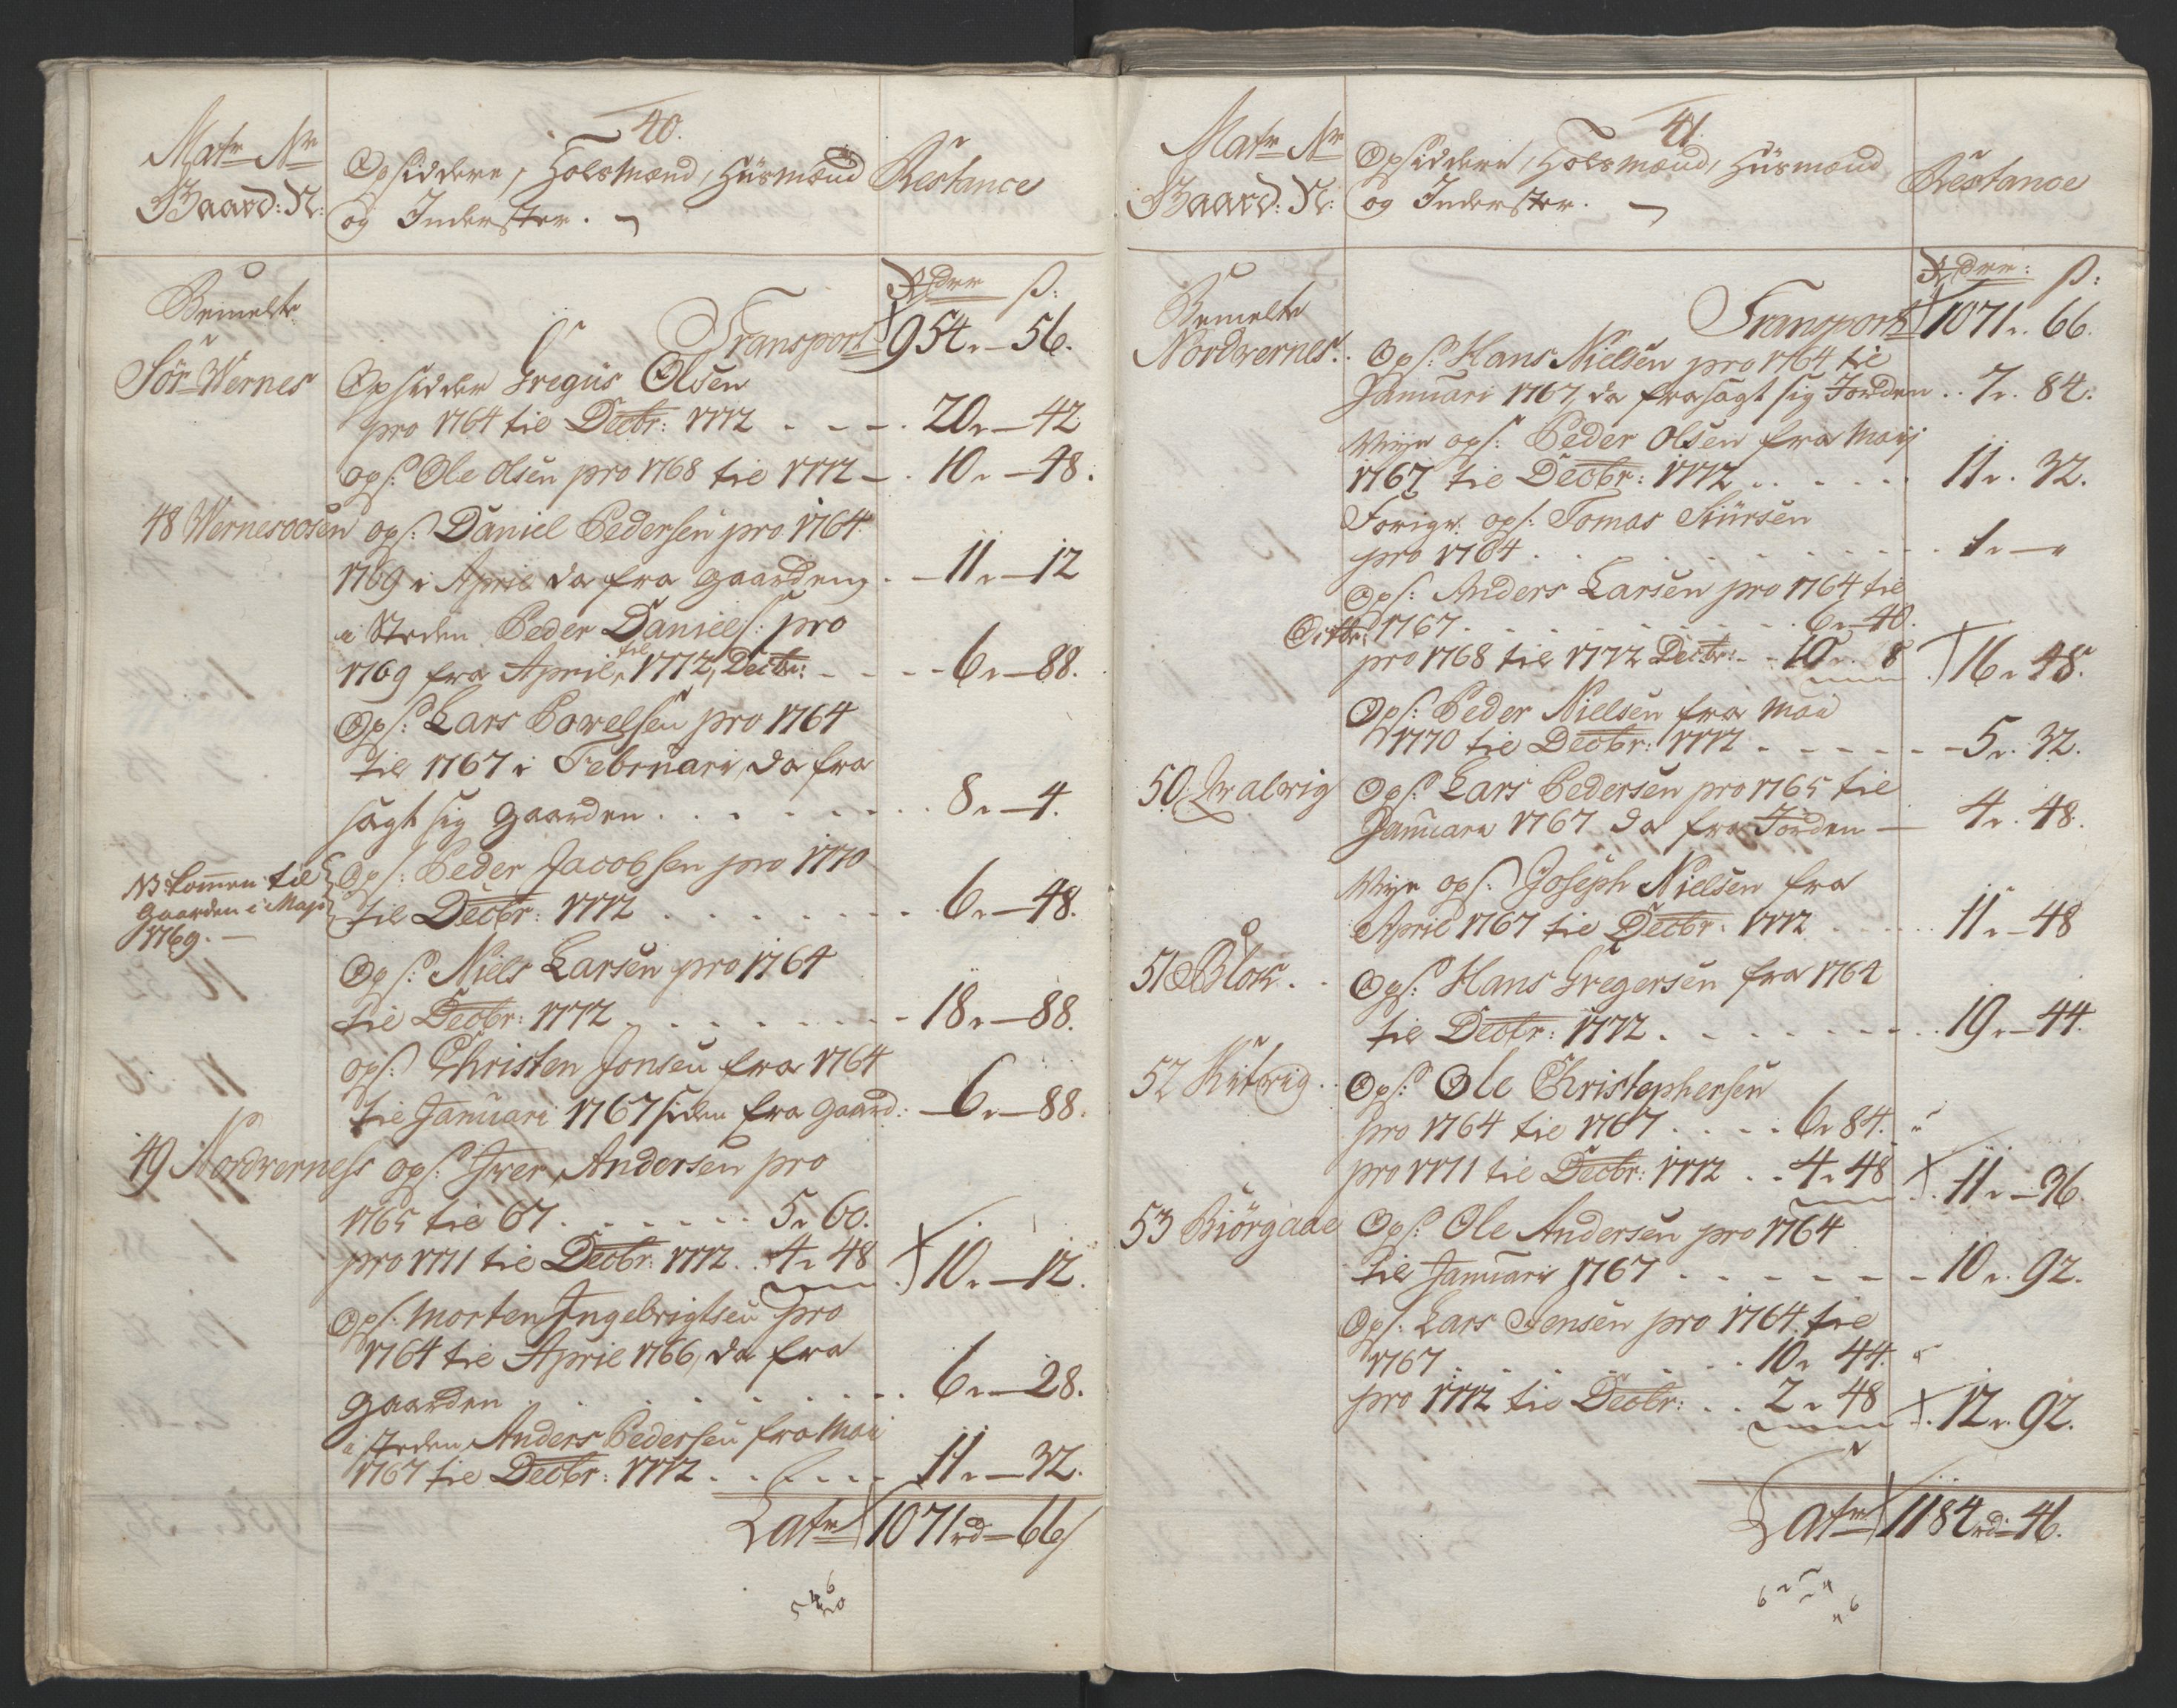 40.
Matr Nr
Gaard: N:
Opsiddere, Holsmænd, Hüsmænd
og Inderster.
Restance
Rdrr ß:
Bemelte
Transport 954 „ — 56.
Sör Wernes
Opsidder Gregüs Olsen
pro 1764 til Decbr: 1772 . - - . 20 „ — 42
ops: Ole Olsen pro 1768 til 1772 - . 10 „ — 48.
48 Wernesoosen ops: Daniel Pedersen pro 1764
1769 i April da fra gaarden, . — 11 „ — 12
i Steden Peder Daniels: pro
1769 fra April, til 1772, Decbr: - - - - 6 „ — 88.
Ops: Lars Powelsen pro 1764
til 1767 i Februari, da fra
sagt sig gaarden . . . . . . . 8 „ — 4.
NB kommen til
gaarden i Maji
1769. —
Ops: Peder Jacobsen pro 1770
til Decbr: 1772 . . . . . . . 6 „ — 48.
Ops: Niels Larsen pro 1764
til Decbr: 1772 . . . . . . - 18 „ — 88.
ops: Christen Jonsen fra 1764
til Januari 1767 siden fra gaard: — 6 „ — 88.
49 Nordverness ops: Iver Andersen pro
1765 til 67 . . . . . . . 5 „ 60.
pro 1771 til Decbr: 1772 . . 4 „ 48 10 „ — 12.
Ops: Morten Ingebrigtsen pro
1764 til April 1766, da fra
gaarden . . . . . . . 6 „ — 28.
i steden Anders Pedersen fra Mai
1767 til Decbr: 1772 . . . . . 11 „ — 32.
Latr 1071 rd — 66
41.
Matr Nr
Gaard: N:
Opsiddere, Holsmænd, Hüsmænd
og Inderster.
Restance
Rdrr: ß:
Bemelte
Transport 1071 „ 66.
Nordvernes.
Ops: Hans Nielsen pro 1764 til
Januari 1767, da frasagt sig Jorden . . 7 „ 84.
Nye ops: Peder Olsen fra Maij
1767 til Decbr: 1772 . . . . . 11 „ 32.
Forige ops: Tomas Siursen
pro 1764 . . . . . . . . . 1 „ — „
Ops: Anders Larsen pro 1764 til
Octbr: 1767 . . . . . . . . 6 „ 40.
pro 1768 til 1772 Decbr: . . 10 „ 8 16 „ 48.
Ops: Peder Nielsen fra Mai
1770 til Decbr: 1772 . - - - - - 5 „ 32.
50. Qvalvig Ops: Lars Pedersen pro 1765 til
Januari 1767 da fra Jorden — 4 „ 48.
Nye ops: Joseph Nielsen fra
April 1767 til Decbr: 1772 . . . . 11 „ — 48
51 Blok. . Ops: Hans Gregersen fra 1764
til Decbr: 1772 . . . . . . . . 19 „ — 44.
52 Hitvig . . Ops: Ole Christophersen
pro 1764 til 1767 . . . . . 6 „ 84. „
pro 1771 til Decbr: 1772 . . 4 „ 48 11 „ — 36.
53 Biörgaae Ops: Ole Andersen pro 1764
til Januari 1767 . - - - - - - 10 „ 92.
Ops: Lars Jensen pro 1764 til
1767 . . . . . . . . . 10 „ 44. „
pro 1772 til Decbr: . . 2 „ 48 12 „ 92.
Latr 1184 rd — 46.